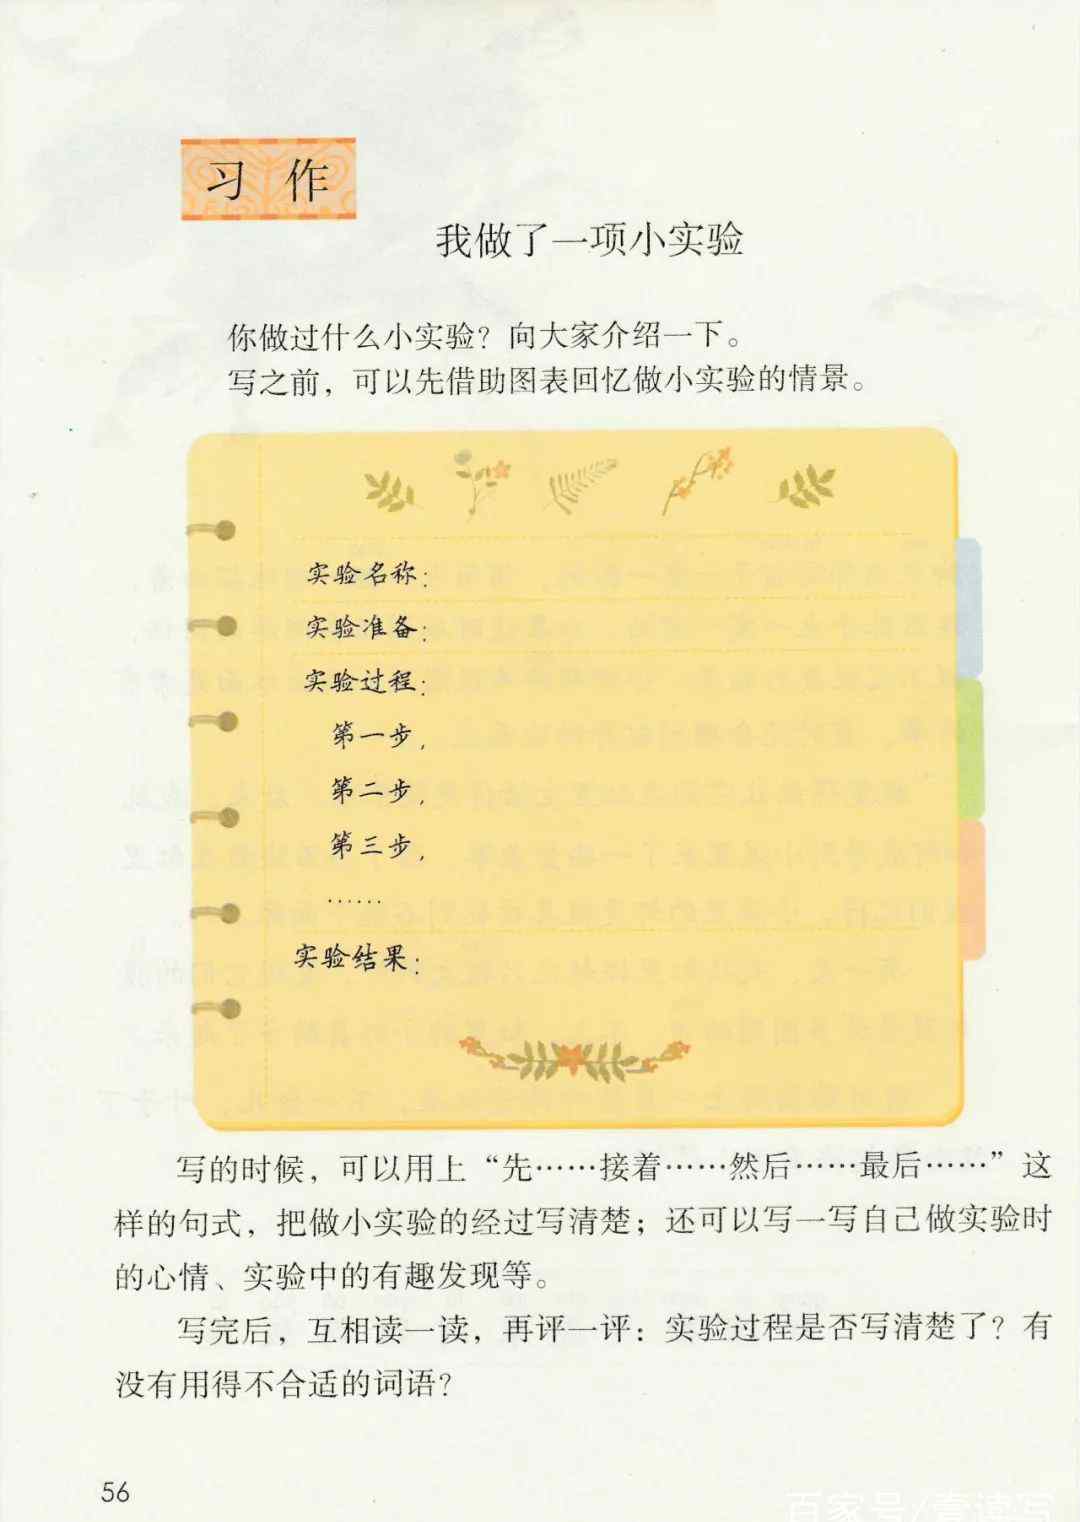 习 作
我做了一项小实验
你做过什么小实验？向大家介绍一下。
写之前，可以先借助图表回忆做小实验的情景。
实验名称：
实验准备：
实验过程：
第一步，
第二步，
第三步，
……
实验结果：
写的时候，可以用上“先……接着……然后……最后……”这
样的句式，把做小实验的经过写清楚；还可以写一写自己做实验时
的心情、实验中的有趣发现等。
写完后，互相读一读，再评一评：实验过程是否写清楚了？有
没有用得不合适的词语？
56
百家号/壹读写